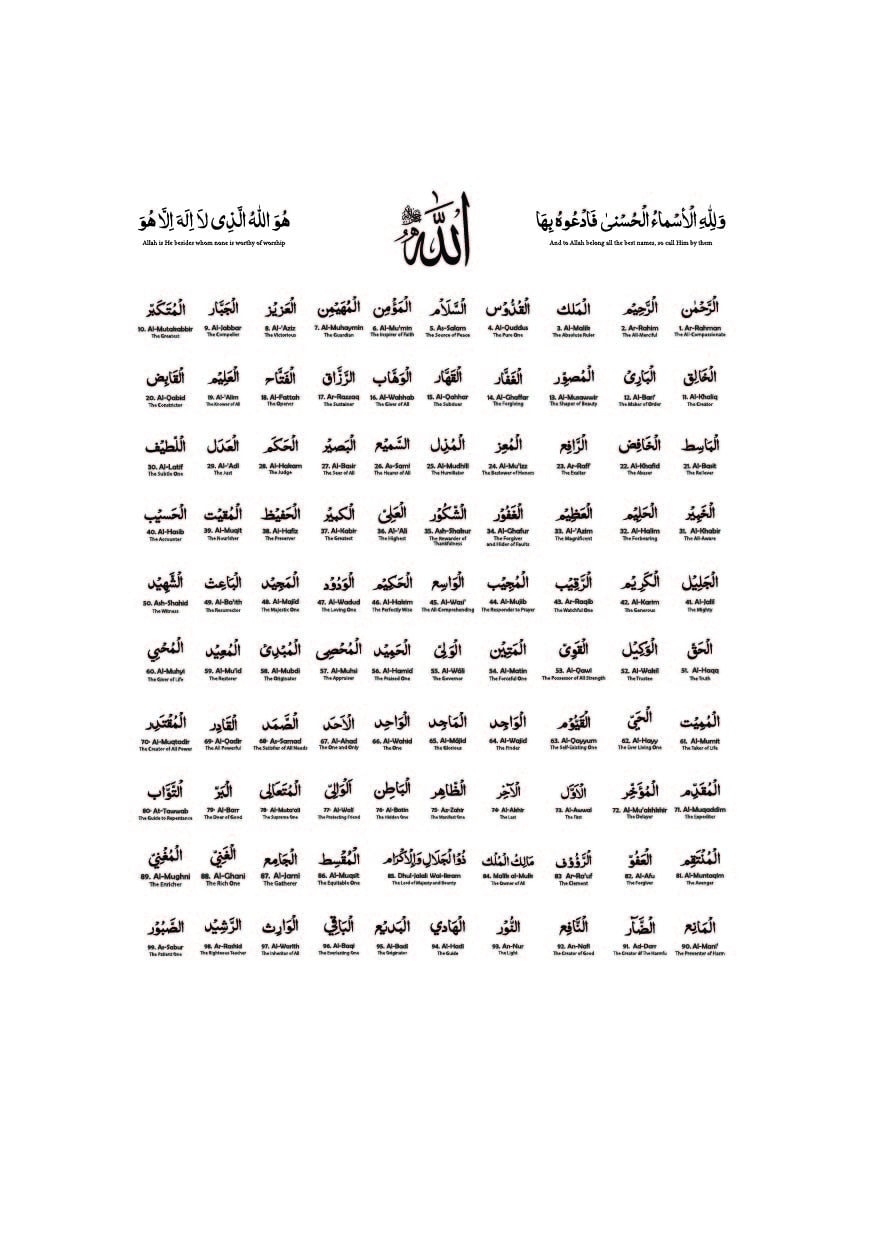 وَلِلّٰهِ الْأَسْمَاءُ الْحُسْنىٰ فَادْعُوهُ بِهَا
And to Allah belong all the best names, so call Him by them
اللّٰه
هُوَ اللّٰهُ الَّذِى لاَ اِلَهَ اِلَّا هُوَ
Allah is He besides whom none is worthy of worship
الْرَّحْمٰن الْرَّحِيْم الْمَلِك الْقُدُّوْس السَّلَاْم الْمَؤْمِن الْمُهَيْمِن الْعَزِيْز الْجَبَّار الْمُتَكَبِّر
1. Ar-Rahman 2. Ar-Rahim 3. Al-Malik 4. Al-Quddus 5. As-Salam 6. Al-Mu'min 7. Al-Muhaymin 8. Al-'Aziz 9. Al-Jabbar 10. Al-Mutakabbir
The All-Compassionate The All-Merciful The Absolute Ruler The Pure One The Source of Peace The Inspirer of Faith The Guardian The Victorious The Compeller The Greatest
الْخَالِق الْبَارِئ الْمُصَوِّر الْغَفَّار الْقَهَّار الْوَهَّاب الْرَّزَّاق الْفَتَّاح الْعَلِيْم الْقَابِض
11. Al-Khaliq 12. Al-Bari' 13. Al-Musawwir 14. Al-Ghaffar 15. Al-Qahhar 16. Al-Wahhab 17. Ar-Razzaq 18. Al-Fattah 19. Al-'Alim 20. Al-Qabid
The Creator The Maker of Order The Shaper of Beauty The Forgiving The Subduer The Giver of All The Sustainer The Opener The Knower of All The Constrictor
الْبَاسِط الْخَافِض الْرَّافِع الْمُعِز الْمُذِل الْسَّمِيْع الْبَصِيْر الْحَكَم الْعَدَل اللَّطِيْف
21. Al-Basit 22. Al-Khafid 23. Ar-Rafi' 24. Al-Mu'izz 25. Al-Mudhill 26. As-Sami 27. Al-Basir 28. Al-Hakam 29. Al-'Adl 30. Al-Latif
The Reliever The Abaser The Exalter The Bestower of Honors The Humiliator The Hearer of All The Seer of All The Judge The Just The Subtle One
الْخَبِيْر الْحَلِيْم الْعَظِيْم الْغَفُوْر الْشَّكُوْر الْعَلِىْ الْكَبِيْر الْحَفِيْظ الْمُقِيْت الْحَسِيْب
31. Al-Khabir 32. Al-Halim 33. Al-'Azim 34. Al-Ghafur 35. Ash-Shakur 36. Al-'Ali 37. Al-Kabir 38. Al-Hafiz 39. Al-Muqit 40. Al-Hasib
The All-Aware The Forbearing The Magnificent The Forgiver and Hider of Faults The Rewarder of Thankfulness The Highest The Greatest The Preserver The Nourisher The Accounter
الْجَلِيْل الْكَرِيْم الْرَّقِيْب الْمُجِيْب الْوَاسِع الْحَكِيْم الْوَدُوْد الْمَجِيْد الْبَاعِث الْشَّهِيْد
41. Al-Jalil 42. Al-Karim 43. Ar-Raqib 44. Al-Mujib 45. Al-Wasi' 46. Al-Hakim 47. Al-Wadud 48. Al-Majid 49. Al-Ba'ith 50. Ash-Shahid
The Mighty The Generous The Watchful One The Responder to Prayer The All-Comprehending The Perfectly Wise The Loving One The Majestic One The Resurrector The Witness
الْحَقّ الْوَكِيْل الْقَوِىْ الْمَتِيْن الْوَلِىْ الْحَمِيْد الْمُحْصِى الْمُبْدِئ الْمُعِيْد الْمُحْيِي
51. Al-Haqq 52. Al-Wakil 53. Al-Qawi 54. Al-Matin 55. Al-Wāli 56. Al-Hamid 57. Al-Muhsi 58. Al-Mubdi 59. Al-Mu'id 60. Al-Muhyi
The Truth The Trustee The Possessor of All Strength The Forceful One The Governor The Praised One The Appraiser The Originator The Restorer The Giver of Life
الْمُمِيْت الْحَيّ الْقَيُّوْم الْوَاجِد الْمَاجِد الْوَاحِد الْاَحَد الْصَّمَد الْقَادِر الْمُقْتَدِر
61. Al-Mumit 62. Al-Hayy 63. Al-Qayyum 64. Al-Wajid 65. Al-Mājid 66. Al-Wahid 67. Al-Ahad 68- Ar-Samad 69- Al-Qadir 70- Al-Muqtadir
The Taker of Life The Ever Living One The Self-Existing One The Finder The Glorious The One The One and Only The Satisfier of All Needs The All Powerful The Creator of All Power
الْمُقَدِّم الْمُؤَخِّر الْاَوَّل الْآخِر الْظَاهِر الْبَاطِن اَلْوَالِىْ الْمُتَعَالِى الْبَرّ الْتَّوَّاب
71. Al-Muqaddim 72. Al-Mu'akhkhir 73. Al-Awwal 74- Al-Akhir 75- Az-Zahir 76- Al-Batin 77- Al-Wali 78- Al-Muta'ali 79- Al-Barr 80- At-Tawwab
The Expediter The Delayer The First The Last The Manifest One The Hidden One The Protecting Friend The Supreme One The Doer of Good The Guide to Repentance
الْمُنْتَقِم الْعَفوّ الْرَّؤُوْف مَالِكُ الْمُلْك ذُوْالْجَلَالِ وَالْاِكْرَام الْمُقْسِط الْجَامِع الْغَنِيّ الْمُغْنِيّ
81. Al-Muntaqim 82. Al-Afu 83 Ar-Ra'uf 84. Malik al-Mulk 85. Dhul-jalali Wal-Ikram 86. Al-Muqsit 87. Al-Jami 88. Al-Ghani 89. Al-Mughni
The Avenger The Forgiver The Clement The Owner of All The Lord of Majesty and Bounty The Equitable One The Gatherer The Rich One The Enricher
الْمَانِع الْضَّآر الْنَّافِع الْنُّوْر الْهَادِي الْبَدِيْع الْبَاقِي الْوَارِث الْرَّشِيْد الْصَّبُوْر
90. Al-Mani' 91. Ad-Darr 92. An-Nafi 93. An-Nur 94. Al-Hadi 95. Al-Badi 96. Al-Baqi 97. Al-Warith 98. Ar-Rashid 99. As-Sabur
The Preventer of Harm The Creator of The Harmful The Creator of Good The Light The Guide The Originator The Everlasting One The Inheritor of All The Righteous Teacher The Patient One